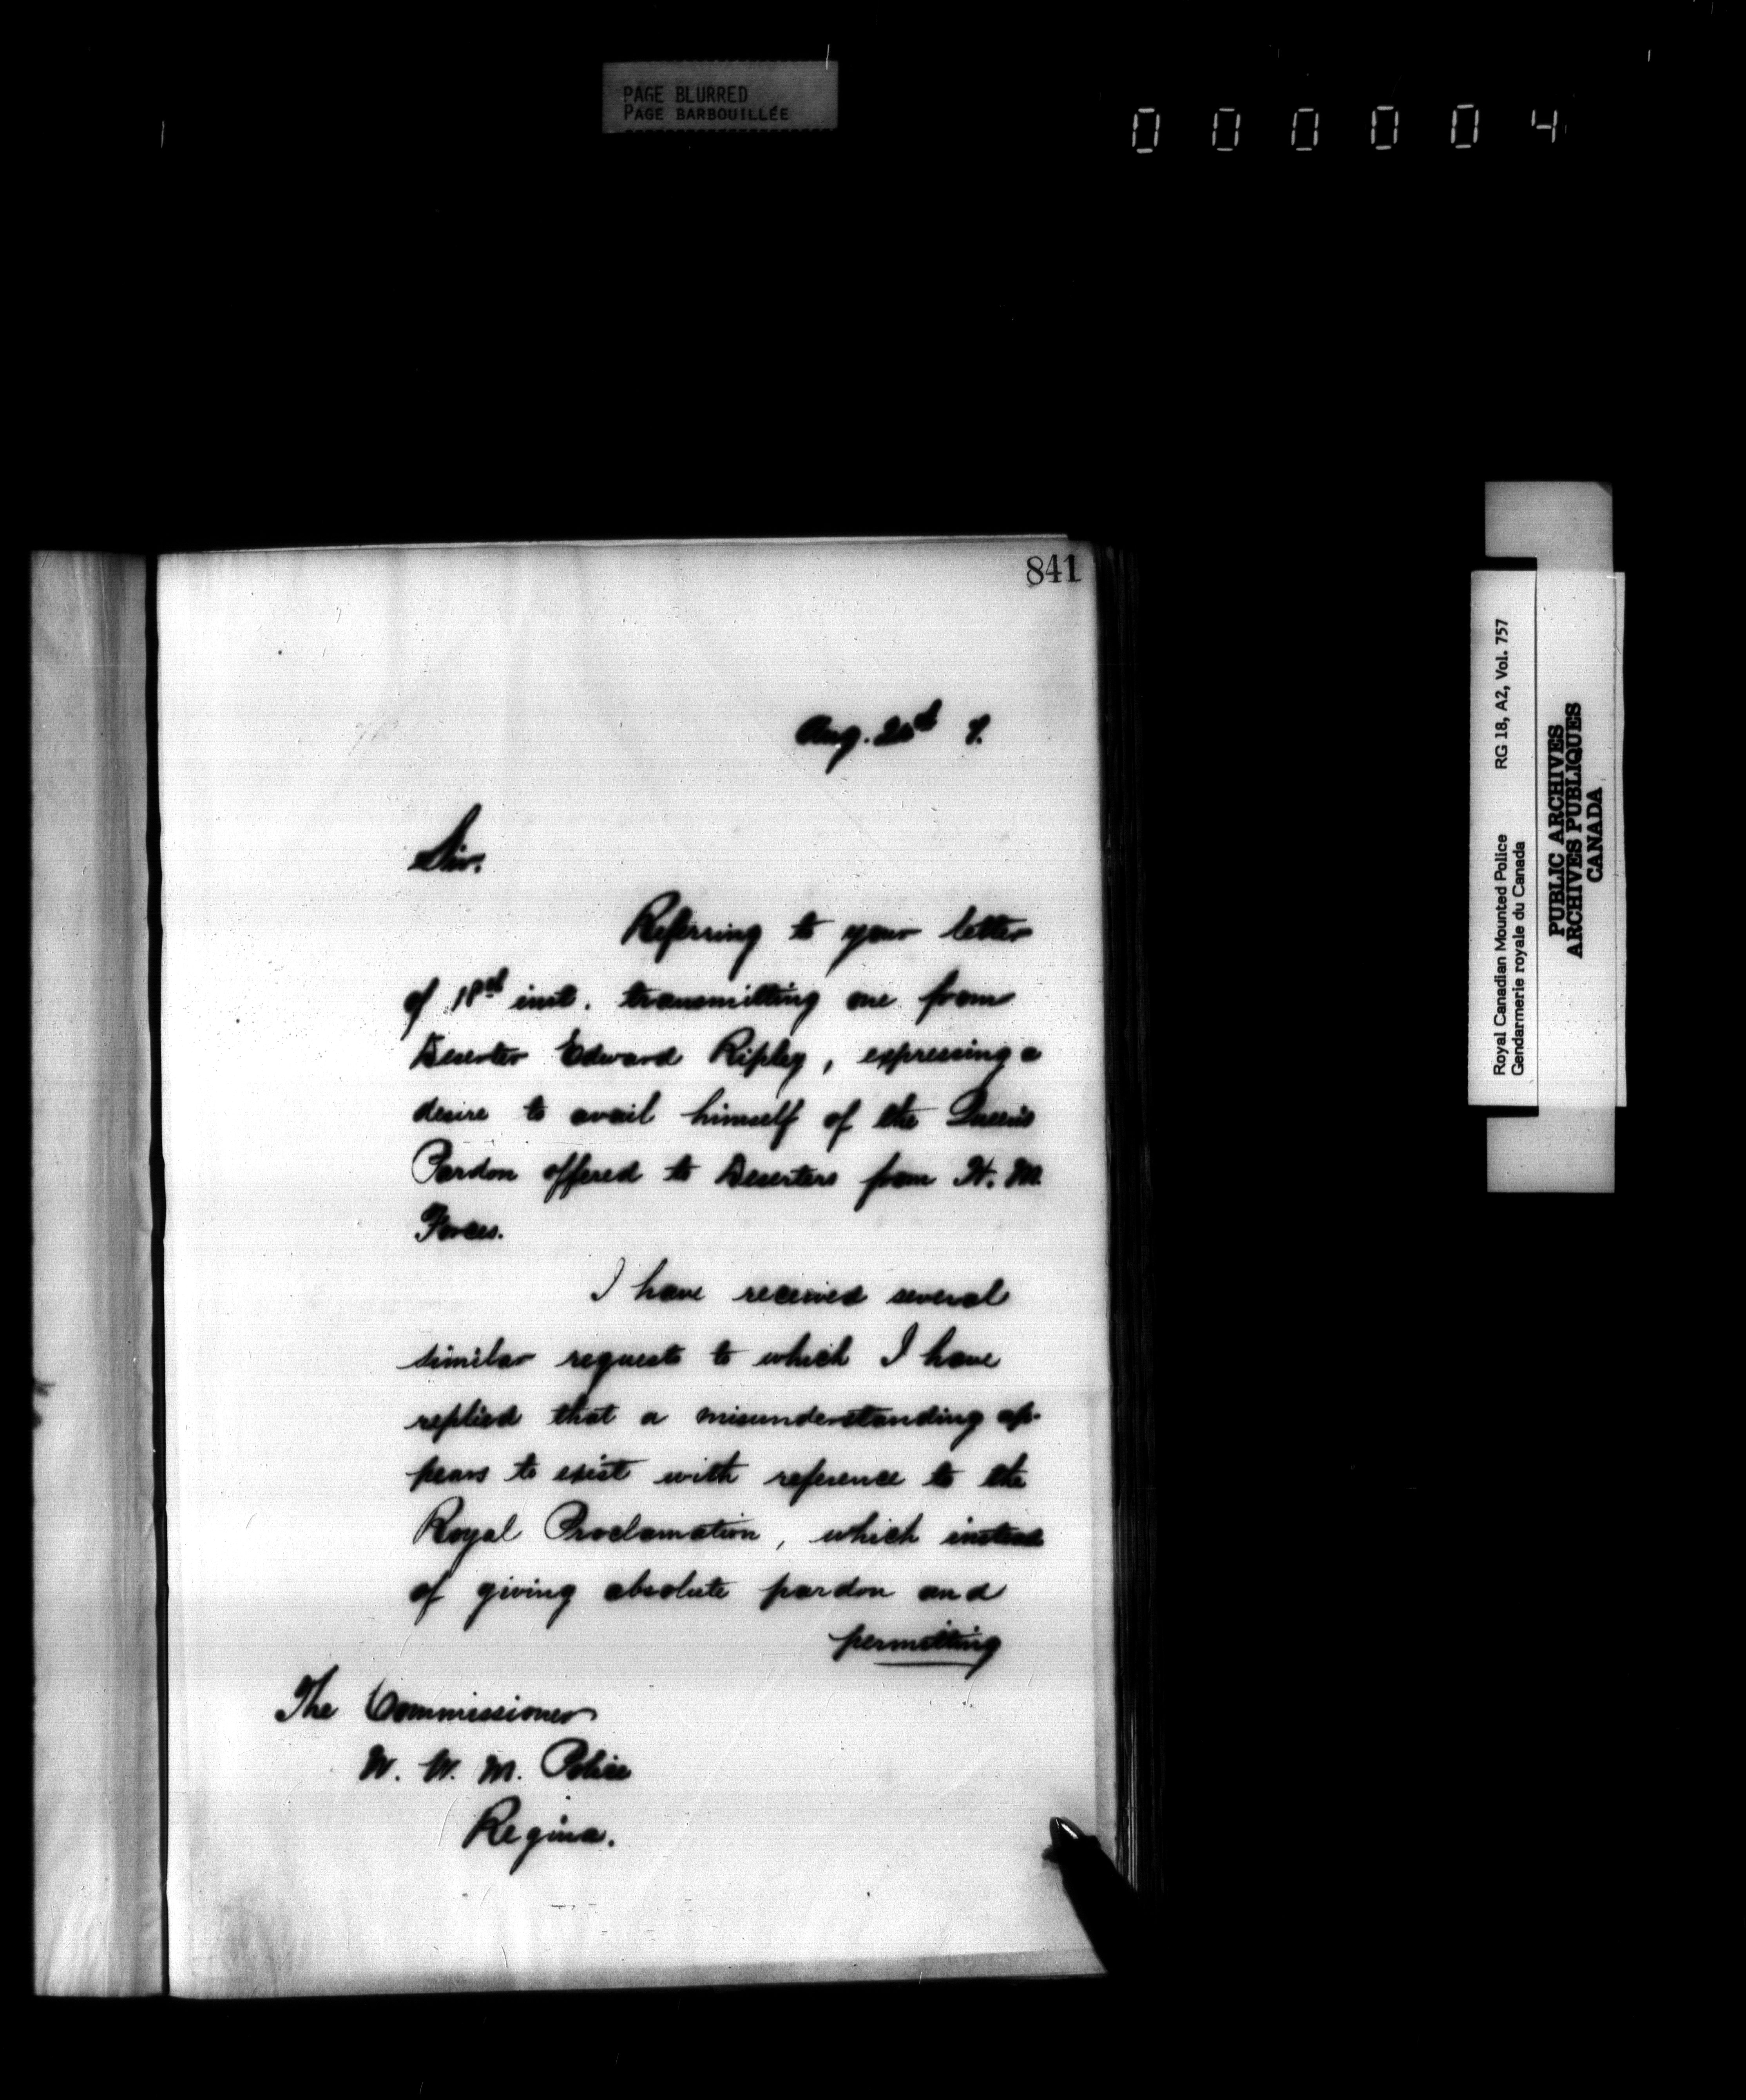 PAGE BLURRED
PAGE BARBOUILLÉE
0 0 0 0 0 4
841
Aug. 20th 7.
Sir.
Referring to your letter
of 18th inst. transmitting one from
Deserter Edward Ripley, expressing a
desire to avail himself of the Queen's
Pardon offered to Deserters from H. M.
Forces.
I have received several
similar requests to which I have
replied that a misunderstanding ap-
pears to exist with reference to the
Royal Proclamation, which instead
of giving absolute pardon and
permitting
The Commissioner
N. W. M. Police
Regina.
Royal Canadian Mounted Police RG 18, A2, Vol. 757
Gendarmerie royale du Canada
PUBLIC ARCHIVES
ARCHIVES PUBLIQUES
CANADA